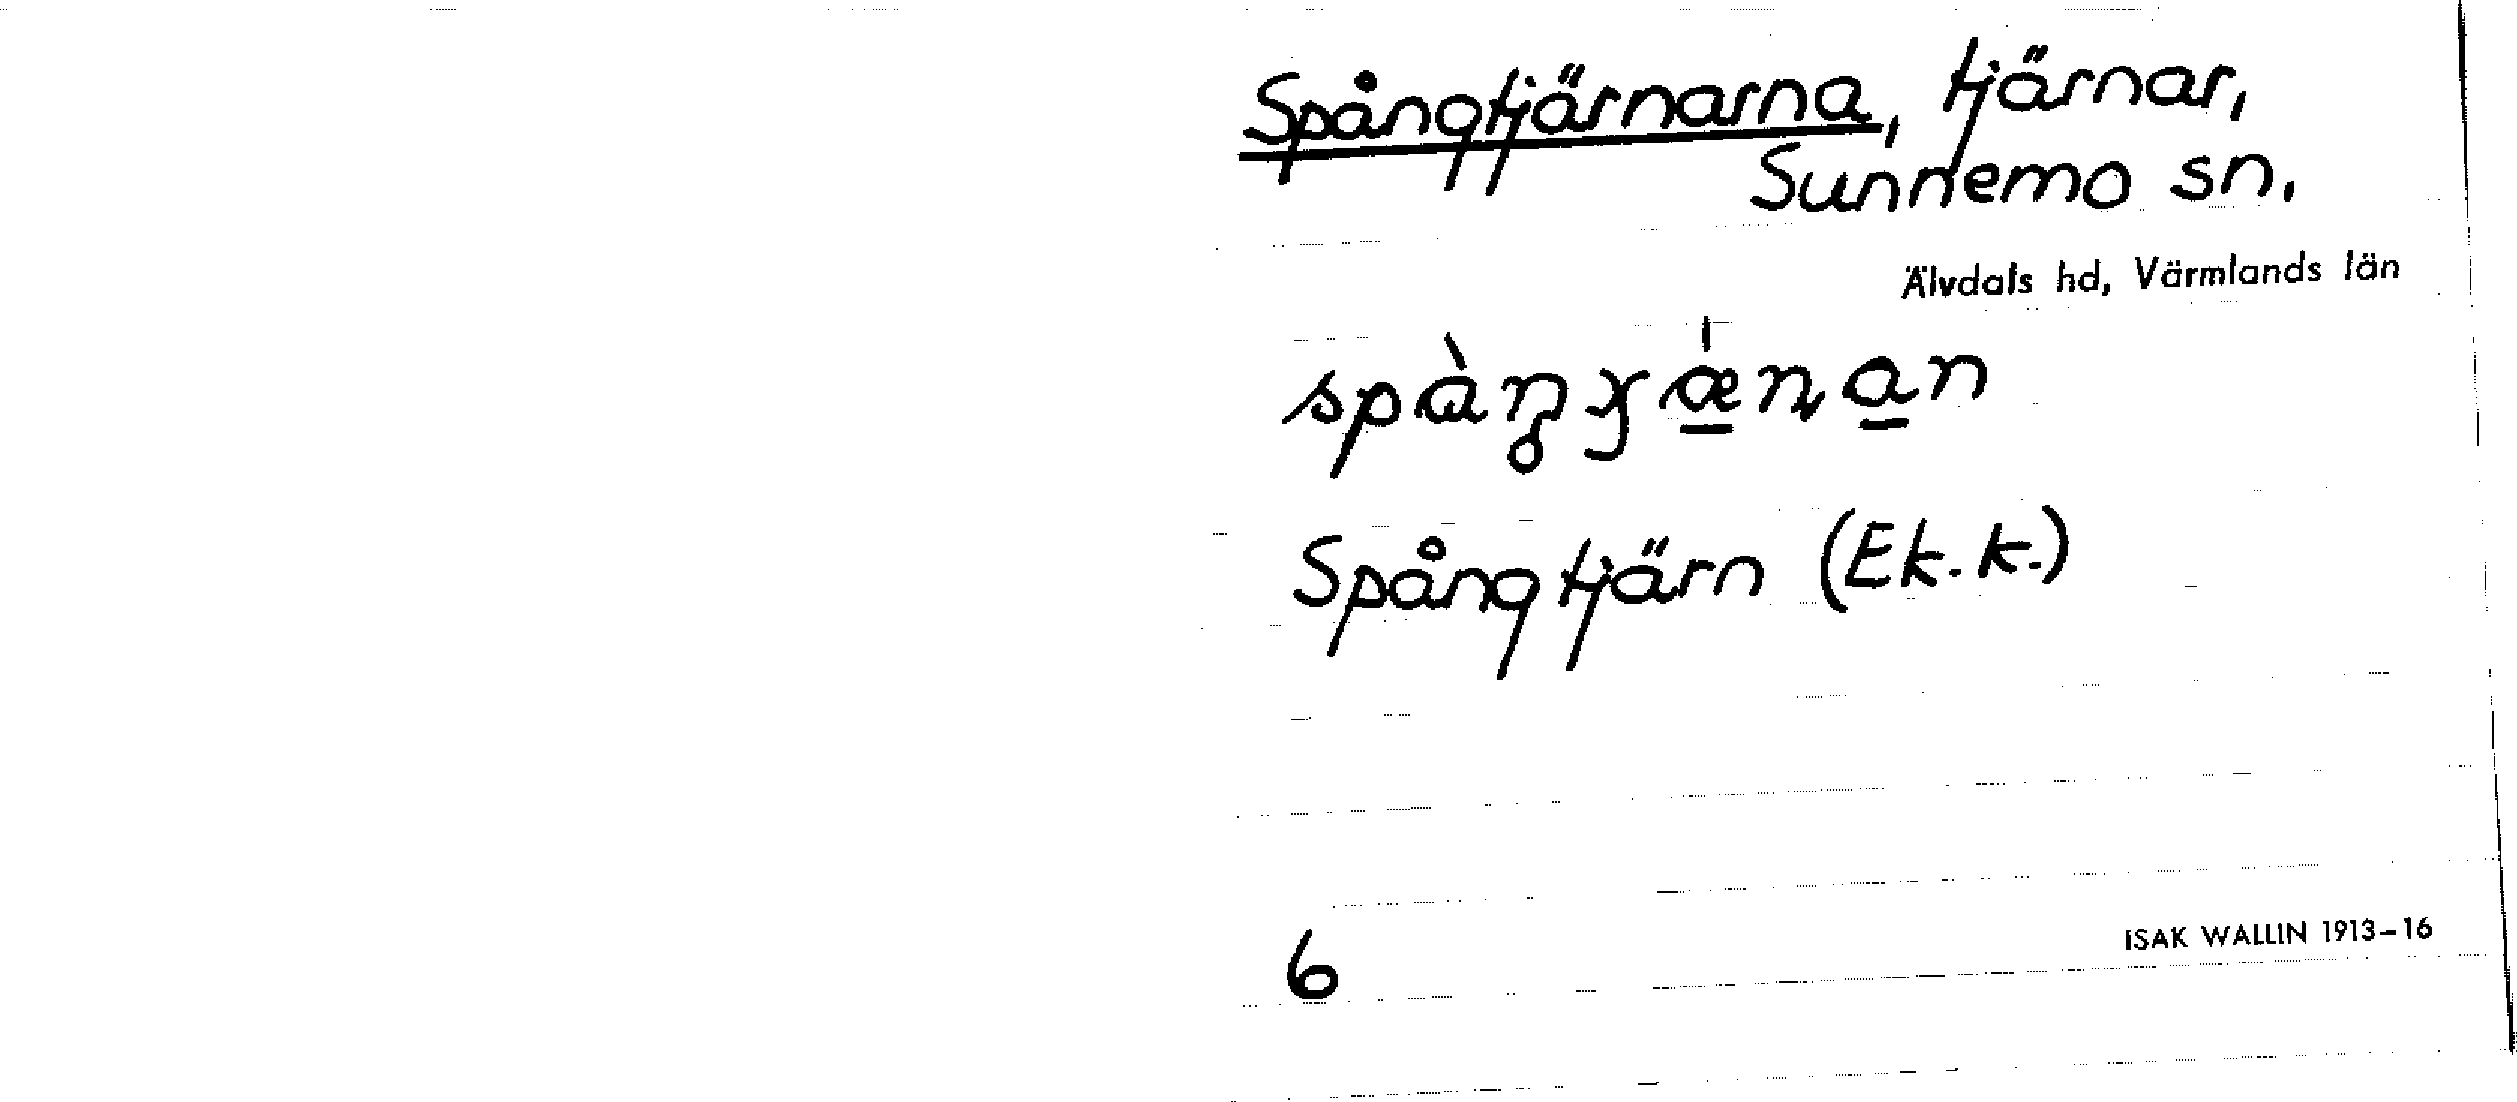 Spångtjärnarna, tjärnar,
Sunnemo sn.
Älvdals hd, Värmlands län
Spångtjärn (Ek. k.)
6
ISAK WALLIN 1913-16